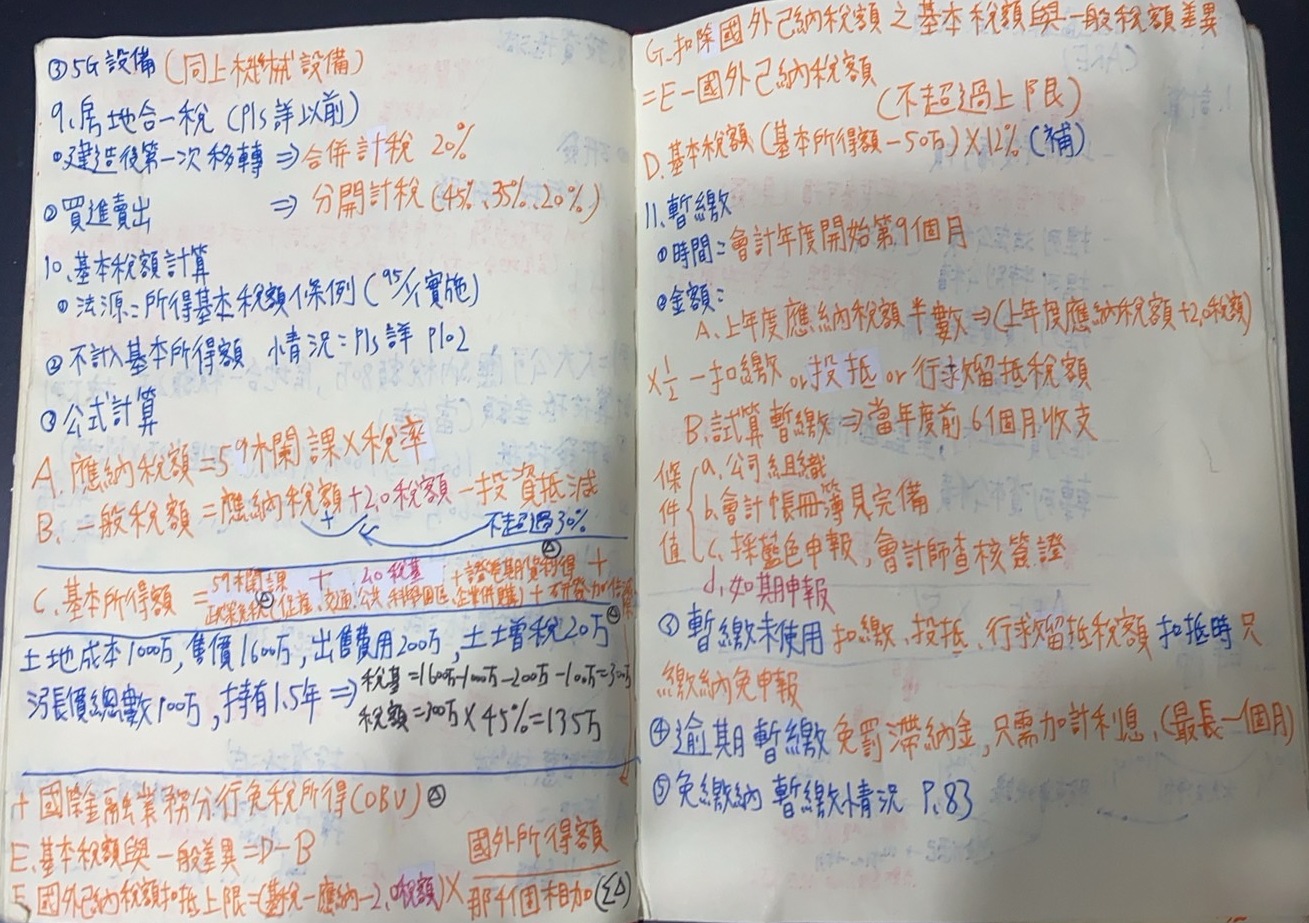 ③5G設備(同上機械設備)
9、房地合一稅(pls詳以前)
①建造後第一次移轉⇒合併計稅 20%
②買進賣出 ⇒ 分開計稅(45%、35%、20%)
10、基本稅額計算
①法源:所得基本稅額條例(95/1/1實施)
②不計入基本所得額 情況:pls詳 P102
③公式計算
A. 應納稅額=59欄課×稅率
B. 一般稅額=應納稅額+2.0稅額-投資抵減
+ 不超過30%
C. 基本所得額 = 59欄課 + 2.0稅基 + 證免期貨利得 +
土地成本1000万,售價1600万,出售費用200万,土增稅20万
漲價總數100万,持有1.5年⇒稅基=1600万-1000万-200万-100万=300万
稅額=300万×45%=135万
+國際金融業務分行免稅所得(OBU)△
E.基本稅額與一般差異=D-B
F.國外已納稅額扣抵上限=(基稅-應納-2.0稅額)× 國外所得額 / 那4個相加(Σ△)
G.扣除國外已納稅額之基本稅額與一般稅額差異
=E-國外已納稅額
(不超過上限)
D.基本稅額(基本所得額-50万)×12%(補)
11、暫繳
①時間:會計年度開始第9個月
②金額:
A、上年度應納稅額半數⇒(上年度應納稅額+2.0稅額)
×1/2-扣繳or投抵or行求留抵稅額
B、試算暫繳⇒當年度前6個月收支
條件值{a.公司組織
b.會計帳冊簿見完備
c.採藍色申報,會計師查核簽證
d.如期申報
③暫繳未使用扣繳、投抵、行求留抵稅額扣抵時只
繳納免申報
④逾期暫繳免罰滯納金,只需加計利息,(最長一個月)
⑤免繳納暫繳情況 P.83